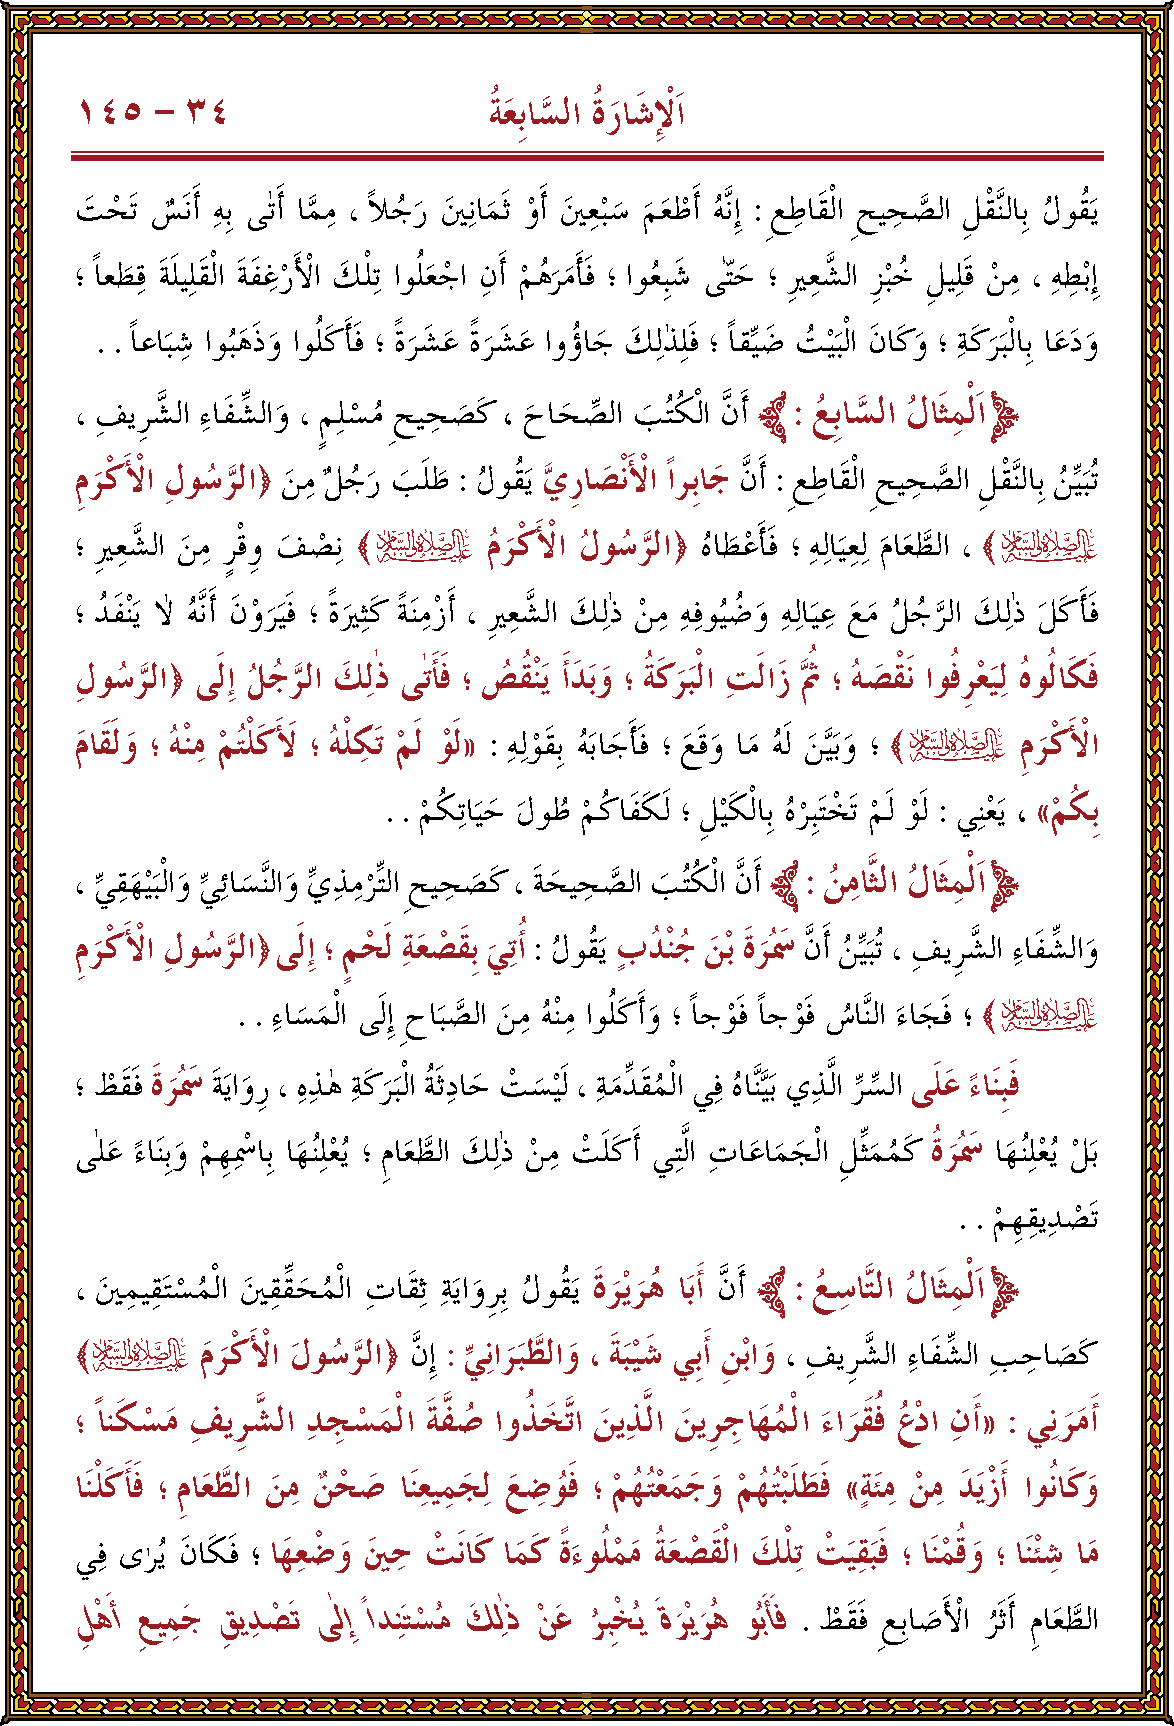 اَلْإِشَارَةُ السَّابِعَةُ ٣٤ - ١٤٥
يَقُولُ بِالنَّقْلِ الصَّحِيحِ الْقَاطِعِ : إِنَّهُ أَطْعَمَ سَبْعِينَ أَوْ ثَمَانِينَ رَجُلاً ، مِمَّا أَتٰى بِهِ أَنَسٌ تَحْتَ
إِبْطِهِ ، مِنْ قَلِيلِ خُبْزِ الشَّعِيرِ ؛ حَتّٰى شَبِعُوا ؛ فَأَمَرَهُمْ أَنِ اجْعَلُوا تِلْكَ الْأَرْغِفَةَ الْقَلِيلَةَ قِطَعاً ؛
وَدَعَا بِالْبَرَكَةِ ؛ وَكَانَ الْبَيْتُ ضَيِّقاً ؛ فَلِذٰلِكَ جَاؤُوا عَشَرَةً عَشَرَةً ؛ فَأَكَلُوا وَذَهَبُوا شِبَاعاً . .
﴿اَلْمِثَالُ السَّابِعُ : ﴾ أَنَّ الْكُتُبَ الصِّحَاحَ ، كَصَحِيحِ مُسْلِمٍ ، وَالشِّفَاءِ الشَّرِيفِ ،
تُبَيِّنُ بِالنَّقْلِ الصَّحِيحِ الْقَاطِعِ : أَنَّ جَابِراً الْأَنْصَارِيَّ يَقُولُ : طَلَبَ رَجُلٌ مِنَ ﴿الرَّسُولِ الْأَكْرَمِ
عليه الصلاة والسلام﴾ ، الطَّعَامَ لِعِيَالِهِ ؛ فَأَعْطَاهُ ﴿الرَّسُولُ الْأَكْرَمُ عليه الصلاة والسلام﴾ نِصْفَ وِقْرٍ مِنَ الشَّعِيرِ ؛
فَأَكَلَ ذٰلِكَ الرَّجُلُ مَعَ عِيَالِهِ وَضُيُوفِهِ مِنْ ذٰلِكَ الشَّعِيرِ ، أَزْمِنَةً كَثِيرَةً ؛ فَيَرَوْنَ أَنَّهُ لاٰ يَنْفَدُ ؛
فَكَالُوهُ لِيَعْرِفُوا نَقْصَهُ ؛ ثُمَّ زَالَتِ الْبَرَكَةُ ؛ وَبَدَأَ يَنْقُصُ ؛ فَأَتٰى ذٰلِكَ الرَّجُلُ إِلَى ﴿الرَّسُولِ
الْأَكْرَمِ عليه الصلاة والسلام﴾ ؛ وَبَيَّنَ لَهُ مَا وَقَعَ ؛ فَأَجَابَهُ بِقَوْلِهِ : «لَوْ لَمْ تَكِلْهُ ؛ لَأَكَلْتُمْ مِنْهُ ؛ وَلَقَامَ
بِكُمْ» ، يَعْنِي : لَوْ لَمْ تَخْتَبِرْهُ بِالْكَيْلِ ؛ لَكَفَاكُمْ طُولَ حَيَاتِكُمْ . .
﴿اَلْمِثَالُ الثَّامِنُ : ﴾ أَنَّ الْكُتُبَ الصَّحِيحَةَ ، كَصَحِيحِ التِّرْمِذِيِّ وَالنَّسَائِيِّ وَالْبَيْهَقِيِّ ،
وَالشِّفَاءِ الشَّرِيفِ ، تُبَيِّنُ أَنَّ سَمُرَةَ بْنَ جُنْدُبٍ يَقُولُ : أُتِيَ بِقَصْعَةِ لَحْمٍ ؛ إِلَى ﴿الرَّسُولِ الْأَكْرَمِ
عليه الصلاة والسلام﴾ ؛ فَجَاءَ النَّاسُ فَوْجاً فَوْجاً ؛ وَأَكَلُوا مِنْهُ مِنَ الصَّبَاحِ إِلَى الْمَسَاءِ . .
فَبِنَاءً عَلَى السِّرِّ الَّذِي بَيَّنَّاهُ فِي الْمُقَدِّمَةِ ، لَيْسَتْ حَادِثَةُ الْبَرَكَةِ هٰذِهِ ، رِوَايَةَ سَمُرَةَ فَقَطْ ؛
بَلْ يُعْلِنُهَا سَمُرَةُ كَمُمَثِّلِ الْجَمَاعَاتِ الَّتِي أَكَلَتْ مِنْ ذٰلِكَ الطَّعَامِ ؛ يُعْلِنُهَا بِاسْمِهِمْ وَبِنَاءً عَلٰى
تَصْدِيقِهِمْ . .
﴿اَلْمِثَالُ التَّاسِعُ : ﴾ أَنَّ أَبَا هُرَيْرَةَ يَقُولُ بِرِوَايَةِ ثِقَاتِ الْمُحَقِّقِينَ الْمُسْتَقِيمِينَ ،
كَصَاحِبِ الشِّفَاءِ الشَّرِيفِ ، وَابْنِ أَبِي شَيْبَةَ ، وَالطَّبَرَانِيِّ : إِنَّ ﴿الرَّسُولَ الْأَكْرَمَ عليه الصلاة والسلام﴾
أَمَرَنِي : «أَنِ ادْعُ فُقَرَاءَ الْمُهَاجِرِينَ الَّذِينَ اتَّخَذُوا صُفَّةَ الْمَسْجِدِ الشَّرِيفِ مَسْكَناً ؛
وَكَانُوا أَزْيَدَ مِنْ مِئَةٍ» فَطَلَبْتُهُمْ وَجَمَعْتُهُمْ ؛ فَوُضِعَ لِجَمِيعِنَا صَحْنٌ مِنَ الطَّعَامِ ؛ فَأَكَلْنَا
مَا شِئْنَا ؛ وَقُمْنَا ؛ فَبَقِيَتْ تِلْكَ الْقَصْعَةُ مَمْلُوءَةً كَمَا كَانَتْ حِينَ وَضْعِهَا ؛ فَكَانَ يُرٰى فِي
الطَّعَامِ أَثَرُ الْأَصَابِعِ فَقَطْ . فَأَبُو هُرَيْرَةَ يُخْبِرُ عَنْ ذٰلِكَ مُسْتَنِداً إِلٰى تَصْدِيقِ جَمِيعِ أَهْلِ